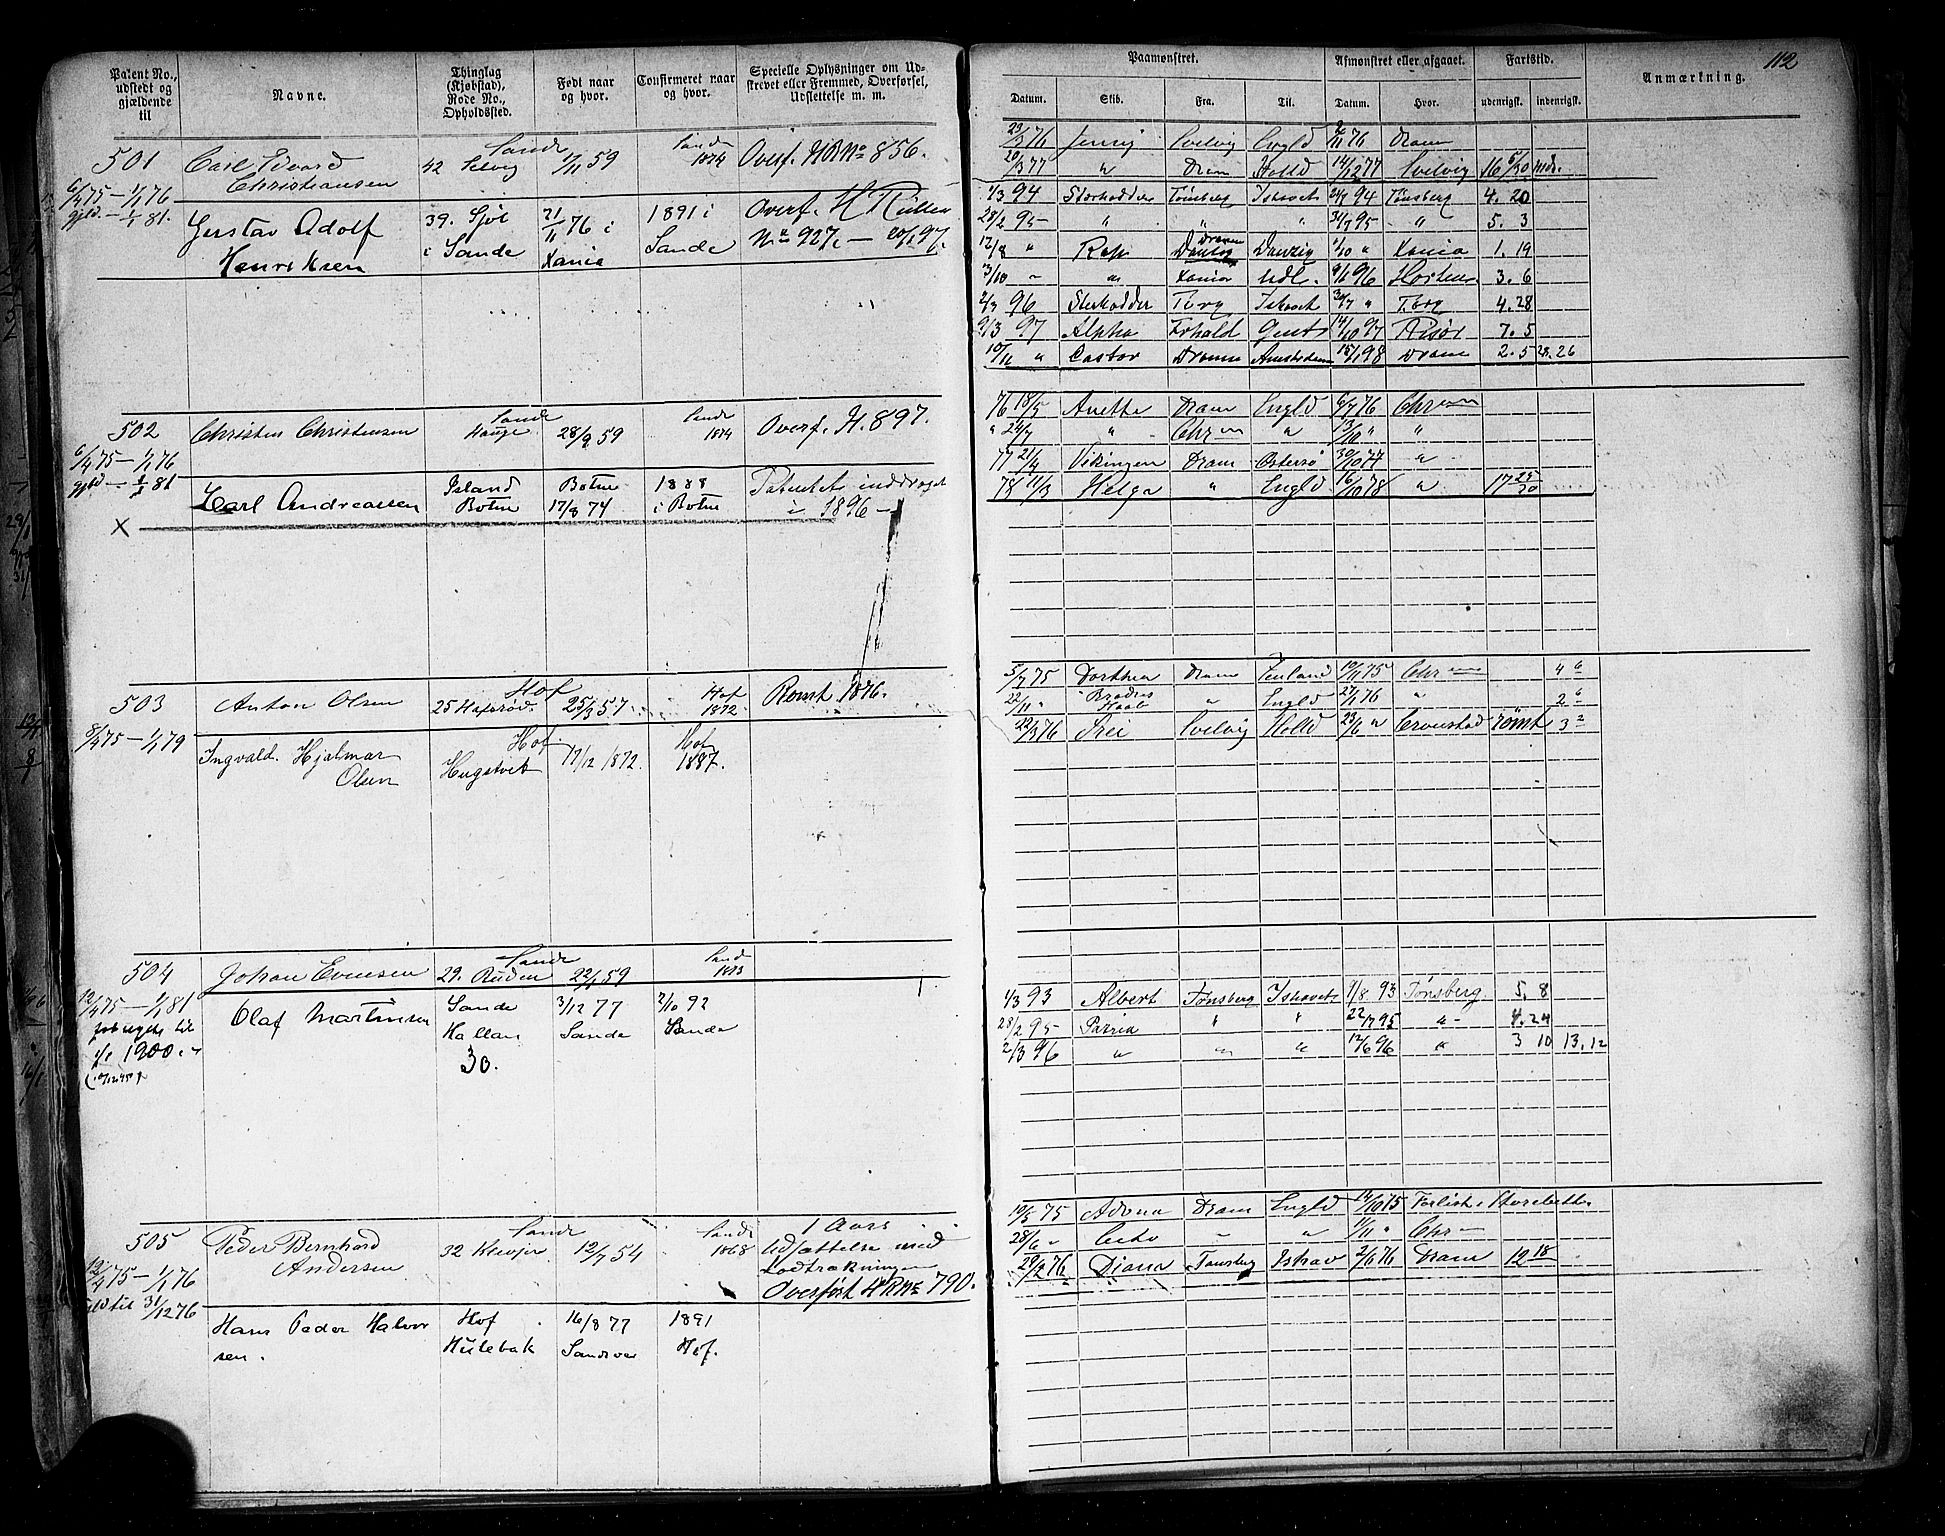 Patent No., udstedt og gjældende til
Navne.
Thinglag (Kjøbstad), Rode No., Opholdssted.
Født naar og hvor.
Confirmeret naar og hvor.
Specielle Oplysninger om Udstrevet eller Fremmed, Overførsel, Udslettelse m. m.
501
Carl Edvard Christiansen
42 Selvig Sande
1/11 59
Sande 1874
Overf. HR No 856.
6/4 75 — 1/1 76
gjld — 1/1 81.
Gustav Adolf Henriksen
39. Sjøl i Sande
21/11 76 i Xania
1891 i Sande
Overf. H Rullen No 927. — 20/1 97.
502
Christen Christensen
Sande Hauge
28/9 59
Sande 1874
Overf. H. 897.
6/4 75 — 1/1 76
gjld — 1/1 81
Carl Andreassen
Island Botne
Botne 17/8 74
1888 i Botne
Patentet inddraget i 1896 —
X
503
Anton Olsen
Hof 25 Hofsrød.
25/3 57
Hof 1872
Rømt 1876.
8/4 75 — 1/1 79
Ingvald Hjalmar Olsen
Hof Hugstvet
17/12 1872.
Hof 1887.
504
Johan Evensen
29. Ruden Sande
22/1 59
Sande 1873
12/4 75 — 1/1 81
forlynget til
1/1 1900
Olaf Martinsen
Sande Hallan 30.
3/12 77 Sande
2/10 92 Sande
505
Peder Bernhard Andersen
32 Klevjer Sande
12/7 54
Sande 1868
1 Aars Udsættelse med Lodtrækningen
Overført HR No 790.
12/4 75 — 1/1 76
Gild til 31/12 76
Hans Peder Halvorsen.
Hof Hulebak
16/8 77
1891 Hof.
112
Paamønstret.
Afmønstret eller afgaaet.
Fartstid.
Anmærkning.
Datum. Skib. Fra. Til. Datum. Hvor. udenrigsk. indenrigsk.
23/3 76 Jenny Svelvig Engld 2/11 76 Dram
20/3 77 " Dram Holld 14/12 77 Svelvig 16 5/30 mdr.
1/3 94 Storkodder Tønsberg Ishavet 24/8 94 Tønsberg 4. 20
28/2 95 " " " 31/7 95 " 5. 3
12/8 " Rap Dram Danzig 1/10 " Xania 1. 19
13/10 " " Xania Udl. 9/1 96 Horten 3. 6
2/3 96 Storkodder Tbrg Ishavet 30/7 " Tbrg 4. 28
9/3 97 Alpha Gent 14/10 97 Risør 7. 5
10/11 " Castor Dramm Amsterdam 15/1 98 Dram 2. 5 28. 26
76 18/5 Anette Dram Engld 6/7 76 Chr
" 24/7 " Chr " 13/10 " "
77 21/4 Vikingen Dram Østersø 30/10 77 "
78 11/3 Helga " Engld 16/10 78 " 17 25/30
5/7 75 Dorthea Dram Jenland 10/11 75 Chr 4 6
22/11 " Brødres Haab " Engld 27/1 76 " 2 6
22/3 76 Frei Svelvig Holld 23/6 " Cronstad rømt 3 2
1/3 93 Albert Tønsberg Ishavet 8/8 93 Tønsberg. 5. 8
28/2 95 " " 22/7 95 " 4. 24
2/3 96 " " " 12/6 96 " 3 10 13. 12
10/5 75 Dram Engld 14/10 75 Forlist
28/6 " " " 1/11 " Chr
29/2 76 Diana Tønsberg Ishav 2/6 76 Dram 12 18